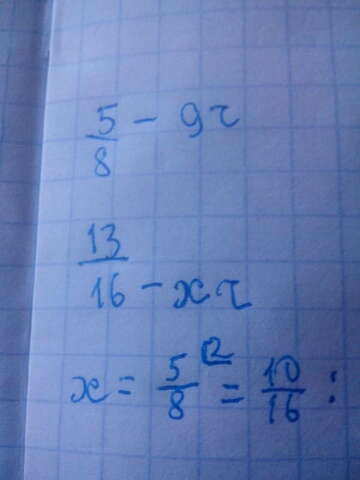 5/8 - 9г
13/16 - x г
x = 5/8 ² = 10/16 :